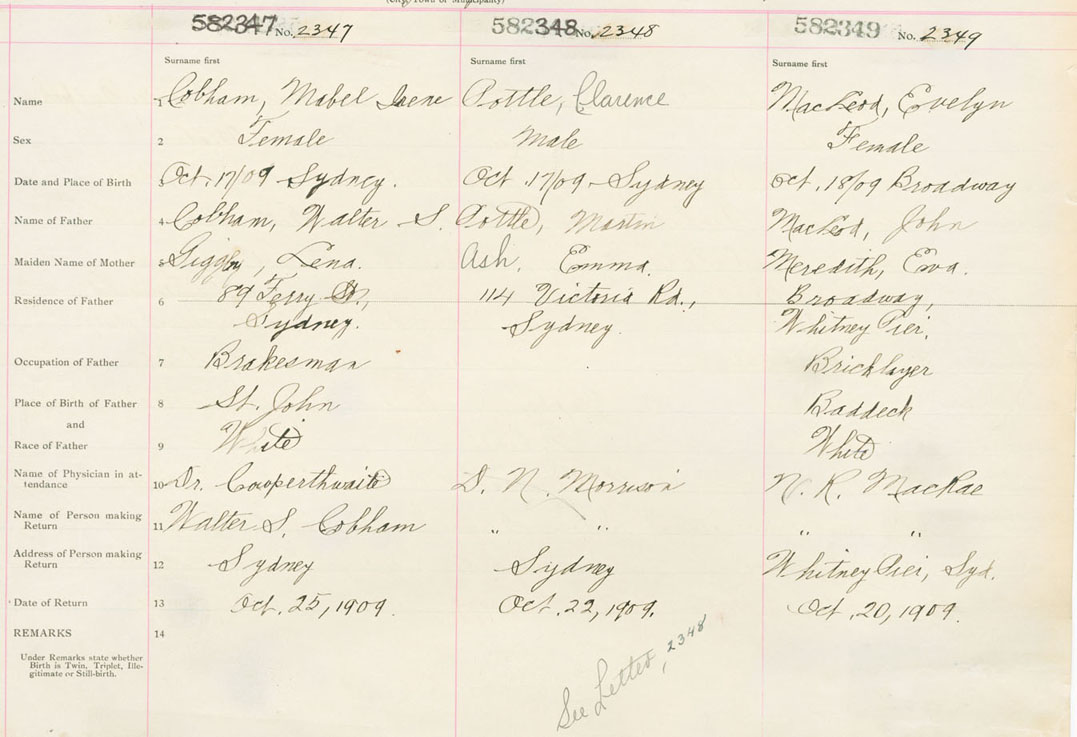 (City, Town or Municipality)
582347 No. 2347 582348 No. 2348 582349 No. 2349
Surname first Surname first Surname first
Name 1 Cobham, Mabel Irene Pottle, Clarence MacLeod, Evelyn
Sex 2 Female Male Female
Date and Place of Birth 3 Oct. 17/09 - Sydney. Oct. 17/09 - Sydney Oct. 18/09 Broadway
Name of Father 4 Cobham, Walter S. Pottle, Martin MacLeod, John
Maiden Name of Mother 5 Lena. Ash, Emma. Meredith, Eva.
Residence of Father 6 89 Ferry St., 114 Victoria Rd., Broadway,
Sydney. Sydney. Whitney Pier.
Occupation of Father 7 Brakesman Bricklayer
Place of Birth of Father 8 St. John Baddeck
and
Race of Father 9 White White
Name of Physician in at-
tendance 10 Dr. Cowperthwaite D. N. Morrison N. K. MacRae
Name of Person making
Return 11 Walter S. Cobham " " " "
Address of Person making
Return 12 Sydney Sydney Whitney Pier, Syd.
Date of Return 13 Oct. 25, 1909. Oct. 22, 1909. Oct. 20, 1909.
REMARKS 14
Under Remarks state whether
Birth is Twin, Triplet, Ille-
gitimate or Still-birth.
See Letter, 2348